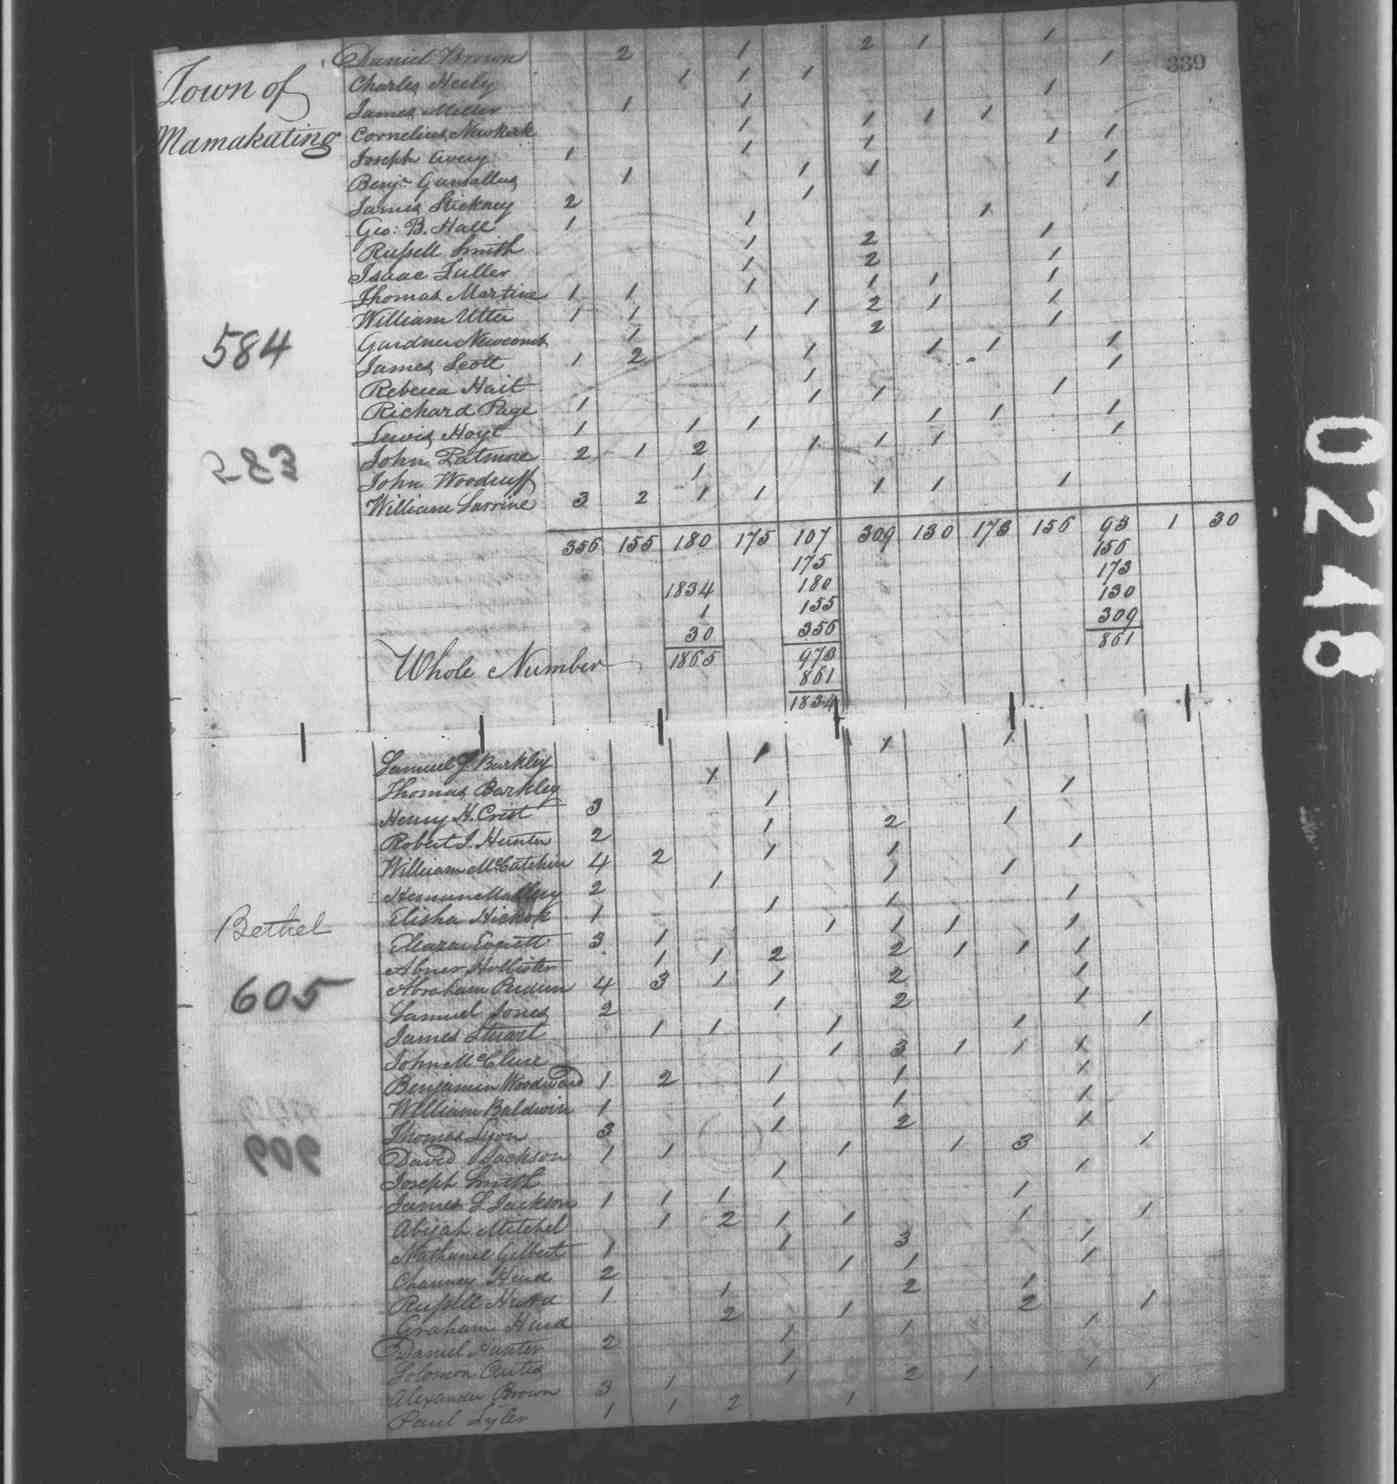 339
Town of
Mamakating
Daniel Brown 2 1 2 1 1
Charles Neely 1 1 1 1
James Miller 1 1 1
Cornelius Newkirk 1 1 1 1
Joseph Avery 1 1 1 1 1
Benjn Gunsallus 1 1 1 1
James Stickney 2 1 1
Geo: B. Hall 1 1 1
Russell Smith 1 2 1
Isaac Fuller 1 2 1
Thomas Martin 1 1 1 1 1 1
William Utter 1 1 1 2 1 1
Gardner Newcomb 1 1 2 1
James Scott 1 2 1 1 1 1
Rebecca Hait 1 1
Richard Page 1 1 1 1
Lewis Hoyt 1 1 1 1 1 1
John Patmore 2 1 2 1 1 1 1
John Woodruff 1
William Sarrine 3 2 1 1 1 1 1
584
583
356 155 180 175 107 309 130 173 156 93 1 30
175 156
1834 180 173
1 155 130
30 356 309
Whole Number 1865 973 861
861
1834
Samuel J Barkley 1 1 1
Thomas Barkley 1 1
Henry H. Crist 3 1
Robert S. Hunter 2 1 2 1
William McCutchin 4 2 1 1 1
Herman Mallery 2 1 1 1
Elisha Hickok 1 1 1 1
Eleazar Everett 3 1 1 1 1 1
Abner Hollister 1 1 2 2 1 1 1
Abraham Perdun 4 3 1 1 2 1
Samuel Jones 2 1 2 1
James Stuart 1 1 1 1 1
John McClure 1 3 1 1 1
Benjamin Woodward 1 2 1 1 1
William Baldwin 1 1 1 1
Thomas Lyon 3 1 2 1
David Jackson 1 1 1 1 3 1
Joseph Smith 1 1
James L Jackson 1 1 1 1
Abijah Mitchel 1 2 1 1 1 1
Nathaniel Gilbert 1 1 3 1
Chauncy Hurd 2 1 1 1
Russell Hurd 1 1 2 1
Graham Hurd 2 1 2 1
Daniel Hunter 2 1 1 1
Solomon 1
Alexander Brown 3 1 1 2 1 1
Paul Tyler 1 1 2 1 1
Bethel
605
606
0248